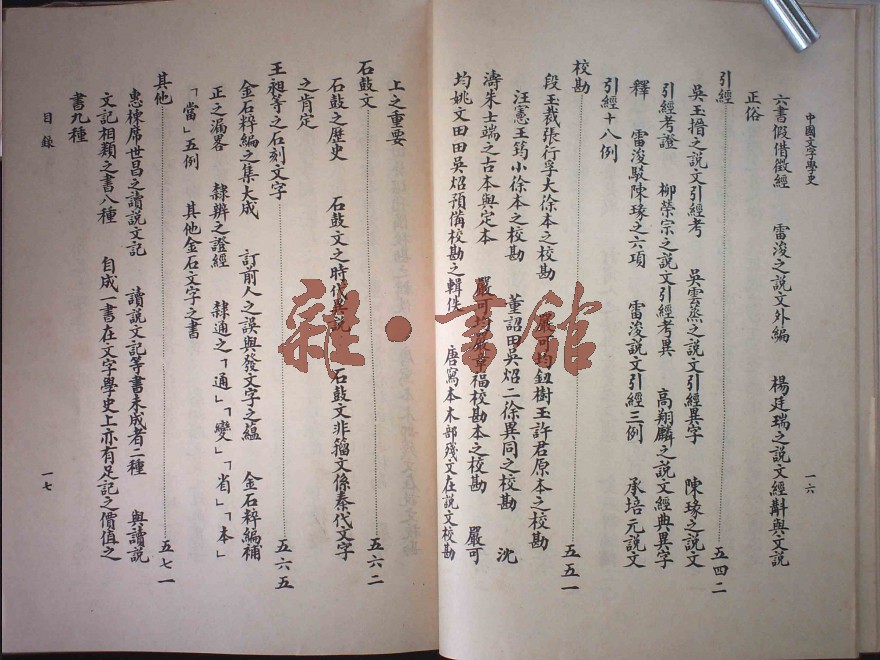 中國文字學史
一六
六書假借徵經　雷浚之說文外編　楊廷瑞之說文經斠與說文
正俗
引經……五四二
吳玉搢之說文引經考　吳雲蒸之說文引經異字　陳瑑之說文
引經考證　柳榮宗之說文引經考異　高翔麟之說文經典異字
釋　雷浚駁陳瑑之六項　雷浚說文引經三例　承培元說文
引經十八例
校勘……五五一
段玉裁張行孚大徐本之校勘　嚴可均鈕樹玉許君原本之校勘
汪憲王筠小徐本之校勘　董詔田吳炤二徐異同之校勘　沈
濤朱士端之古本與定本　嚴可均　章福校勘本之校勘　嚴可
均姚文田田吳炤預備校勘之輯佚　唐寫本木部殘文在說文校勘
上之重要
石鼓文……五六二
石鼓之歷史　石鼓文之時代異說　石鼓文非籀文係秦代文字
之肯定
王昶等之石刻文字……五六五
金石粹編之集大成　訂前人之誤與發文字之蘊　金石粹編補
正之漏略　隸辨之證經　隸通之「通」「變」「省」「本」
「當」五例　其他金石文字之書
其他……五七一
惠棟席世昌之讀說文記　讀說文記等書未成者二種　與讀說
文記相類之書八種　自成一書在文字學史上亦有足記之價值之
書九種
目錄
一七
雜·書館